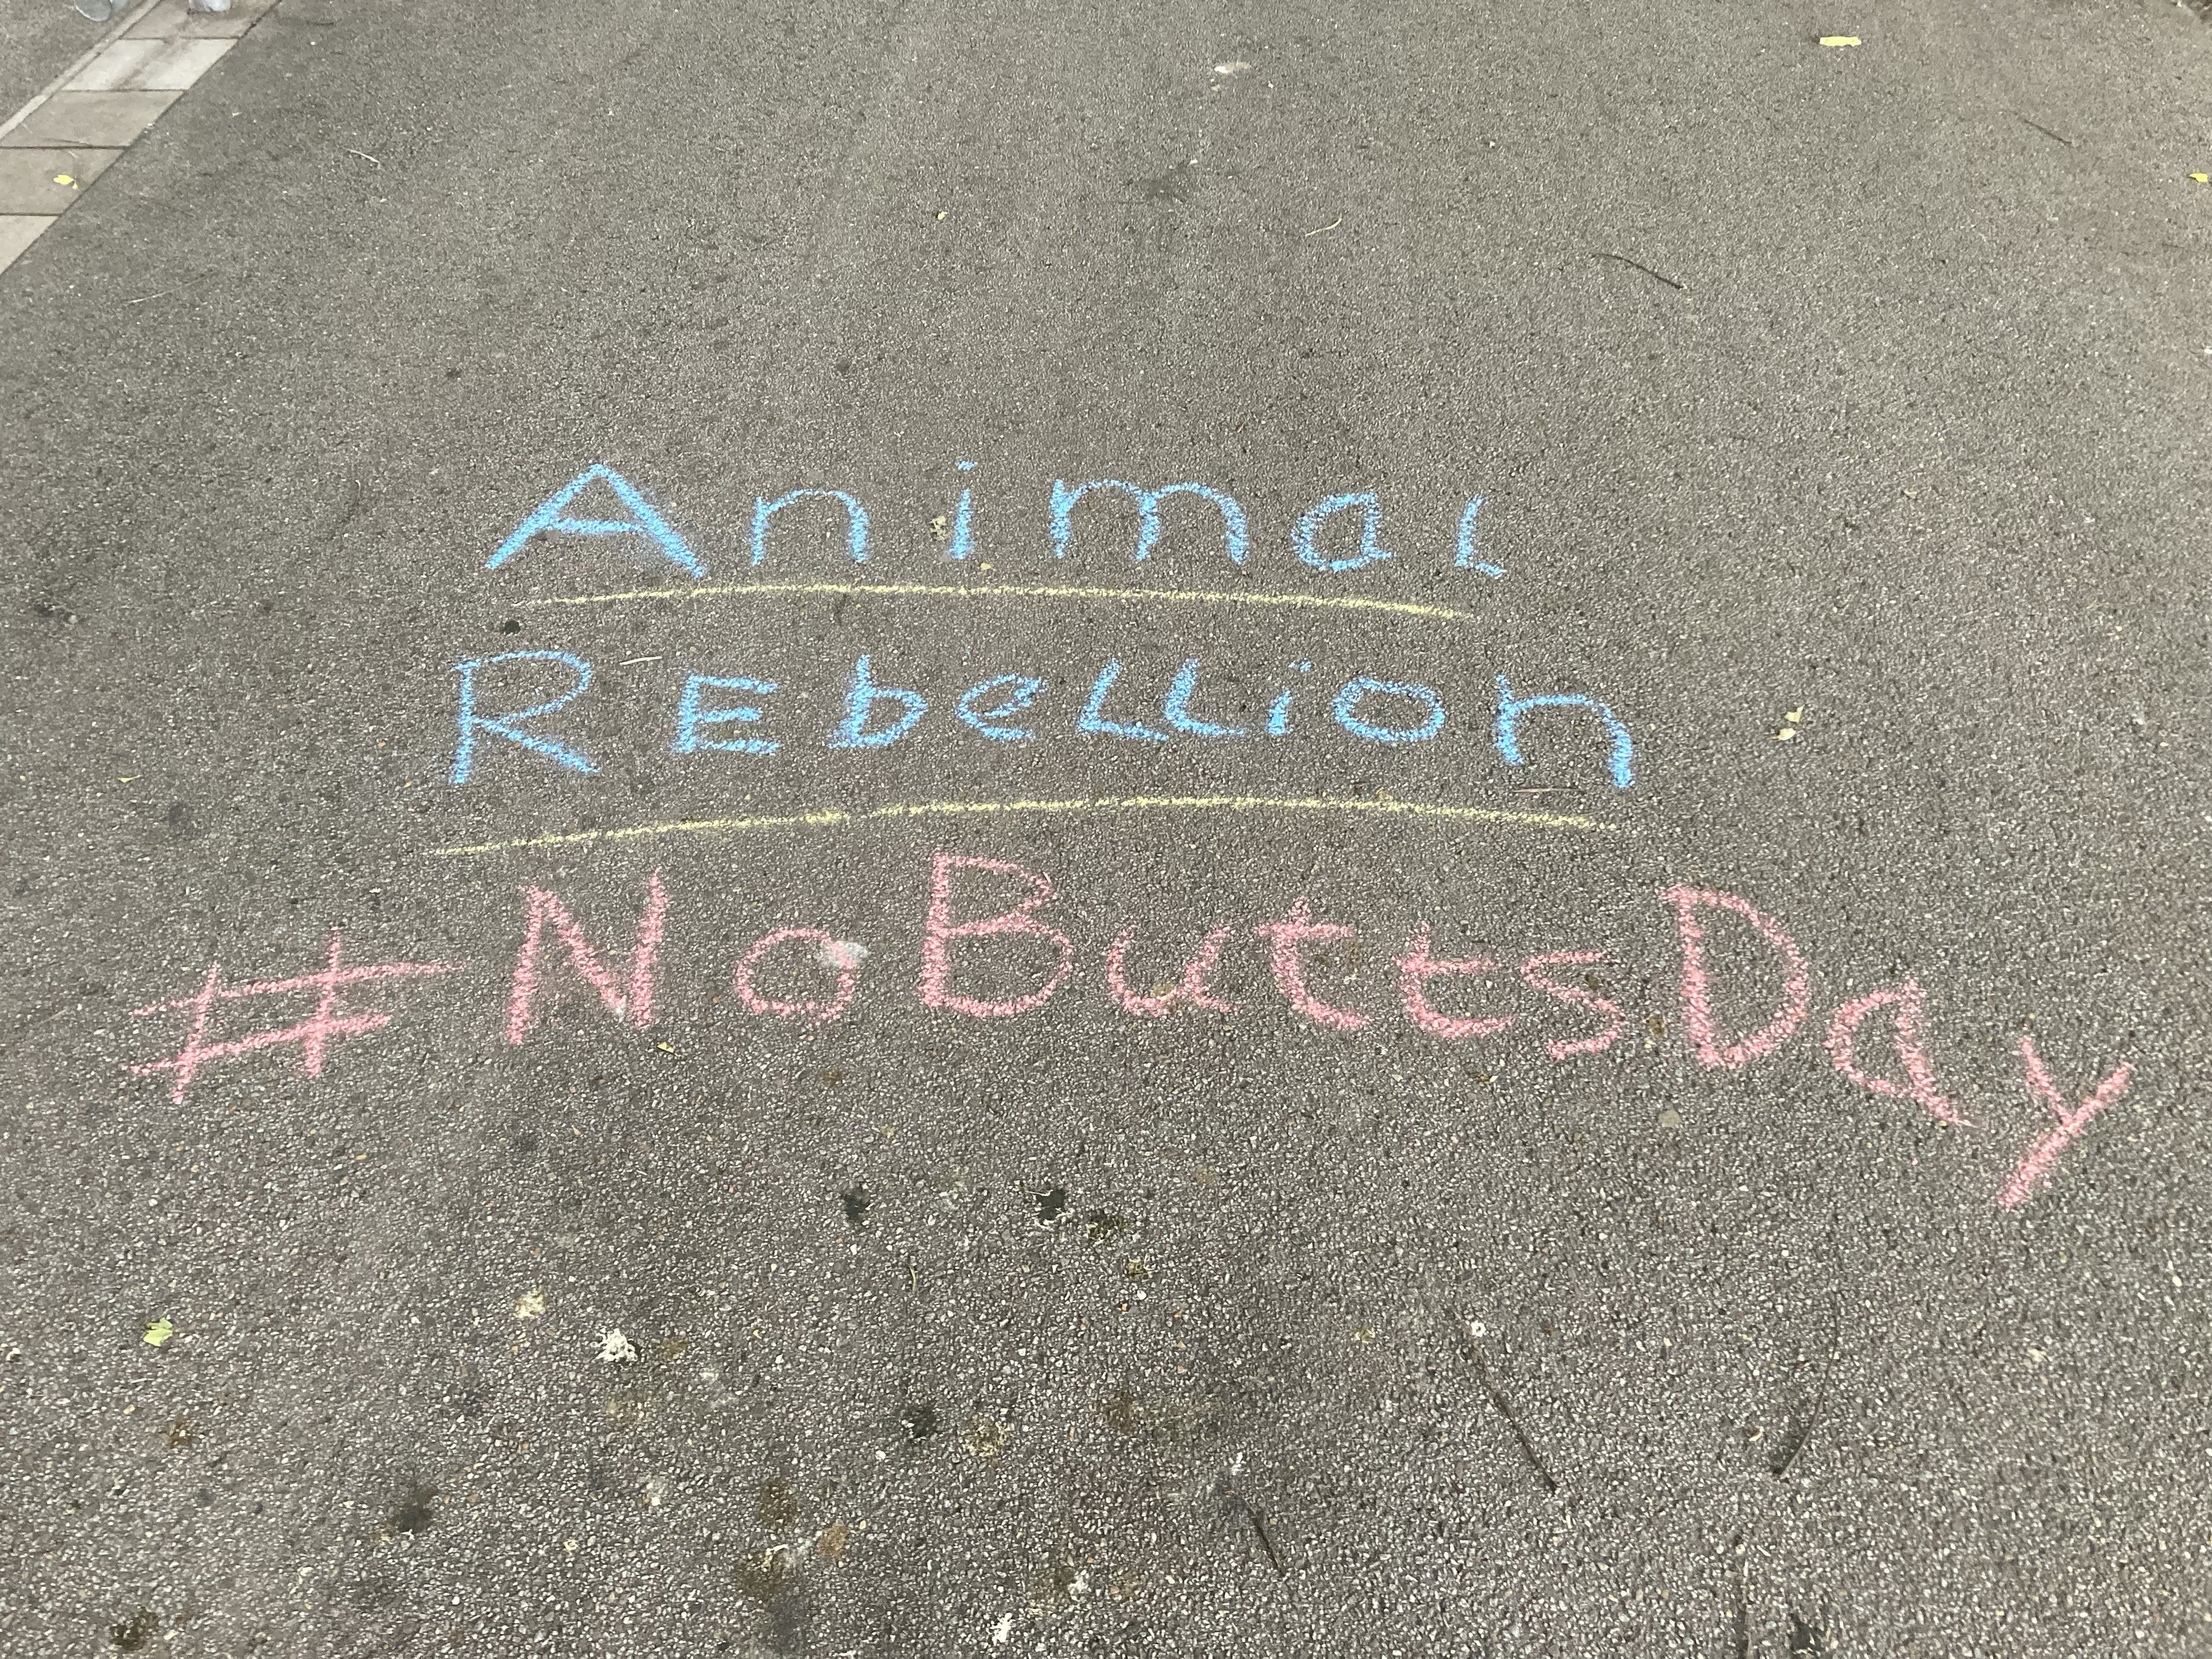 Animal
REbellion
#NoButtsDay